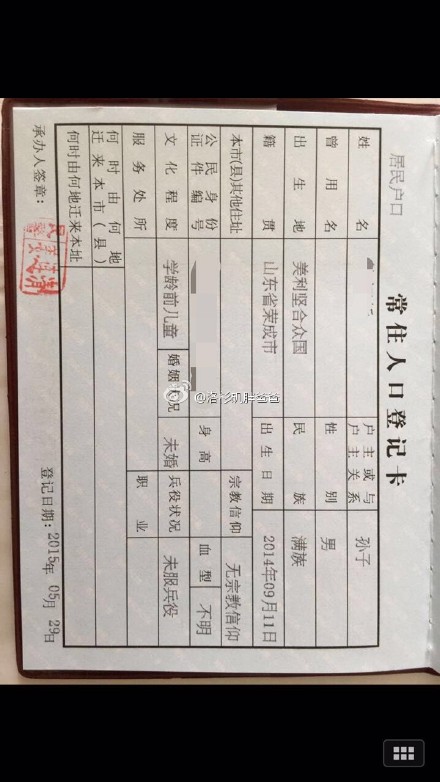 常住人口登记卡
居民户口
姓名
户主或与户主关系 孙子
曾用名
性别 男
出生地 美利坚合众国
民族 满族
籍贯 山东省荣成市
出生日期 2014年09月11日
本市(县)其他住址
宗教信仰 无宗教信仰
公民身份证件编号
身高
血型 不明
文化程度 学龄前儿童
婚姻状况 未婚
兵役状况 未服兵役
服务处所
职业
何时由何地迁来本市(县)
何时由何地迁来本址
承办人签章:
登记日期:2015年05月29日
@洛杉矶胖爸爸